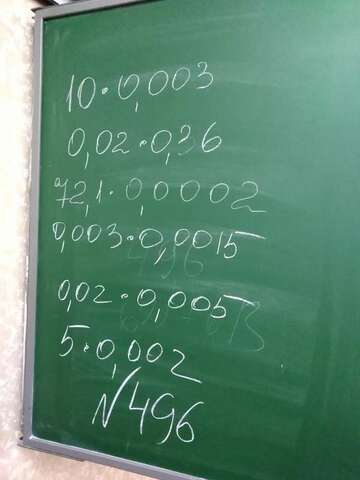 10·0,003
0,02·0,36
72,1·0,0002
0,003·0,0015
0,02·0,005
5·0,002
№496